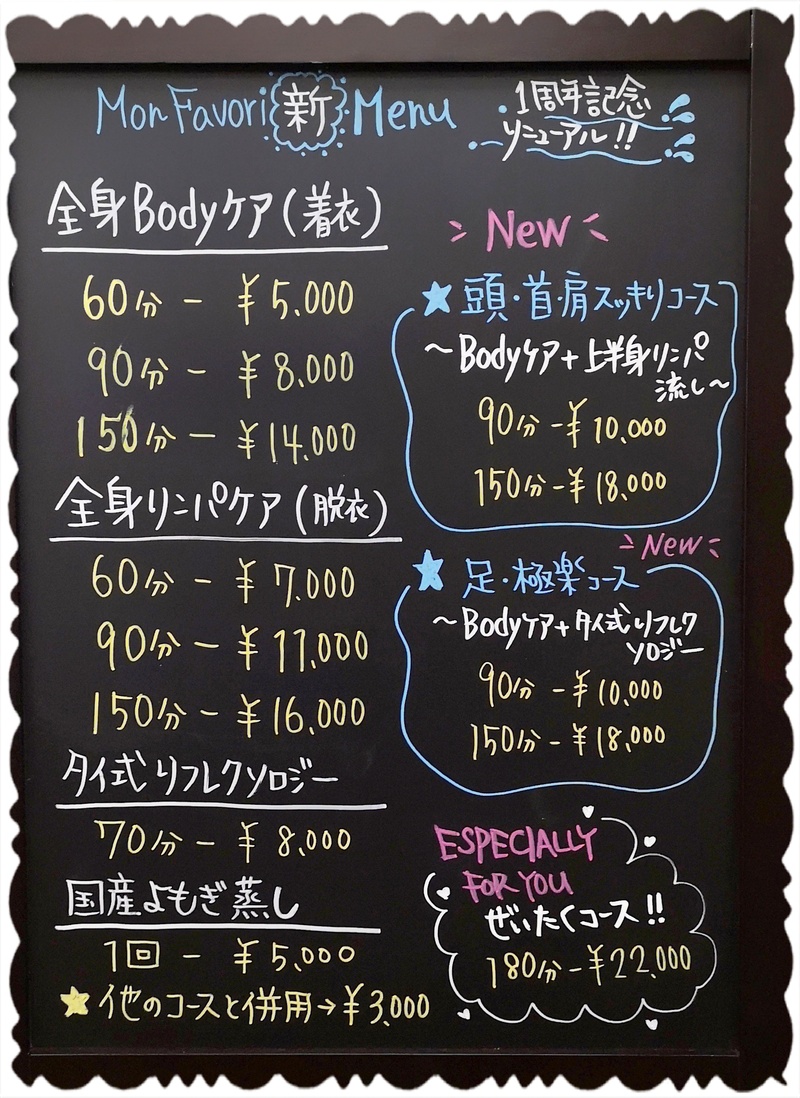 Mon Favori 新 Menu
1周年記念
リニューアル!!
全身Bodyケア(着衣)
60分 - ¥5.000
90分 - ¥8.000
150分 - ¥14.000
全身リンパケア(脱衣)
60分 - ¥7.000
90分 - ¥11.000
150分 - ¥16.000
タイ式リフレクソロジー
70分 - ¥8,000
国産よもぎ蒸し
1回 - ¥5,000
★他のコースと併用→¥3,000
New
★頭・首・肩スッキリコース
～Bodyケア+上半身リンパ
流し～
90分 -¥10,000
150分 -¥18,000
New
★足・極楽コース
～Bodyケア+タイ式リフレク
ソロジー
90分 -¥10,000
150分 -¥18,000
ESPECIALLY
FOR YOU
ぜいたくコース!!
180分 -¥22,000